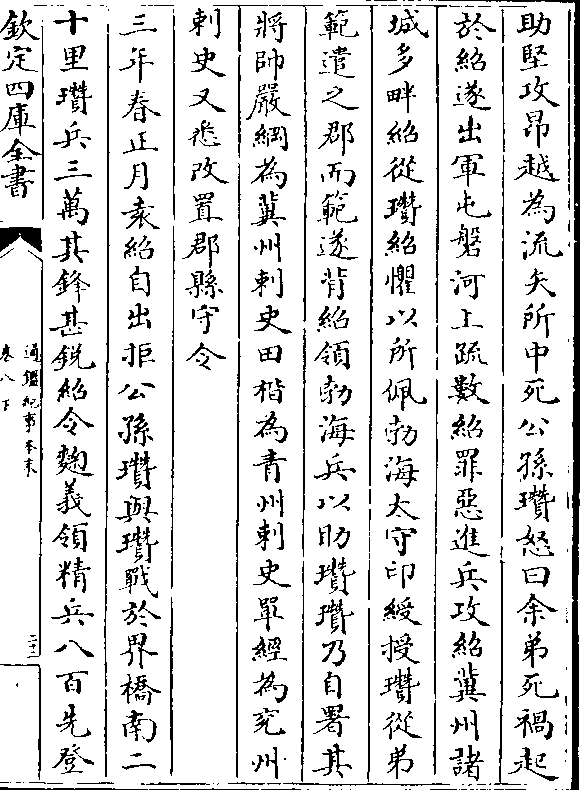 助堅攻昂越為流矢所中死公孫瓚怒曰余弟死禍起
於紹遂出軍屯磐河上疏數紹罪惡進兵攻紹冀州諸
城多畔紹從瓚紹懼以所佩勃海太守印綬授瓚從弟
範遣之郡而範遂背紹領勃海兵以助瓚瓚乃自署其
將帥嚴綱為冀州刺史田楷為青州刺史單經為兖州
刺史又悉改置郡縣守令
三年春正月袁紹自出拒公孫瓚與瓚戰於界橋南二
十里瓚兵三萬其鋒甚銳紹令麴義領精兵八百先登
欽定四庫全書
通鑑紀事本末
卷八下
二十二